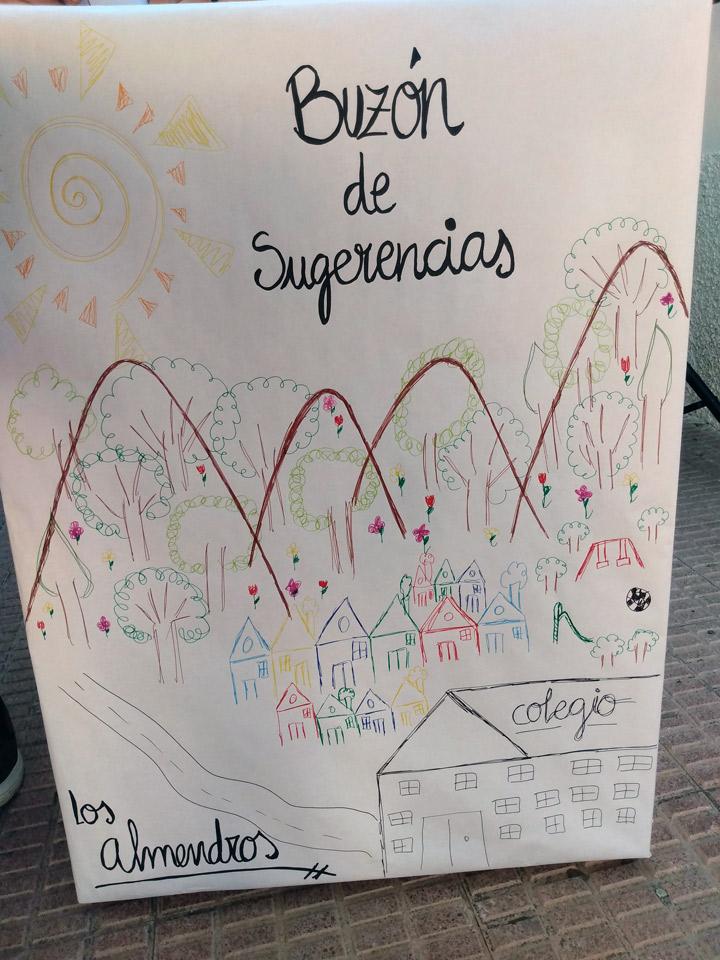 Buzón
de
Sugerencias
colegio
Los
Almendros